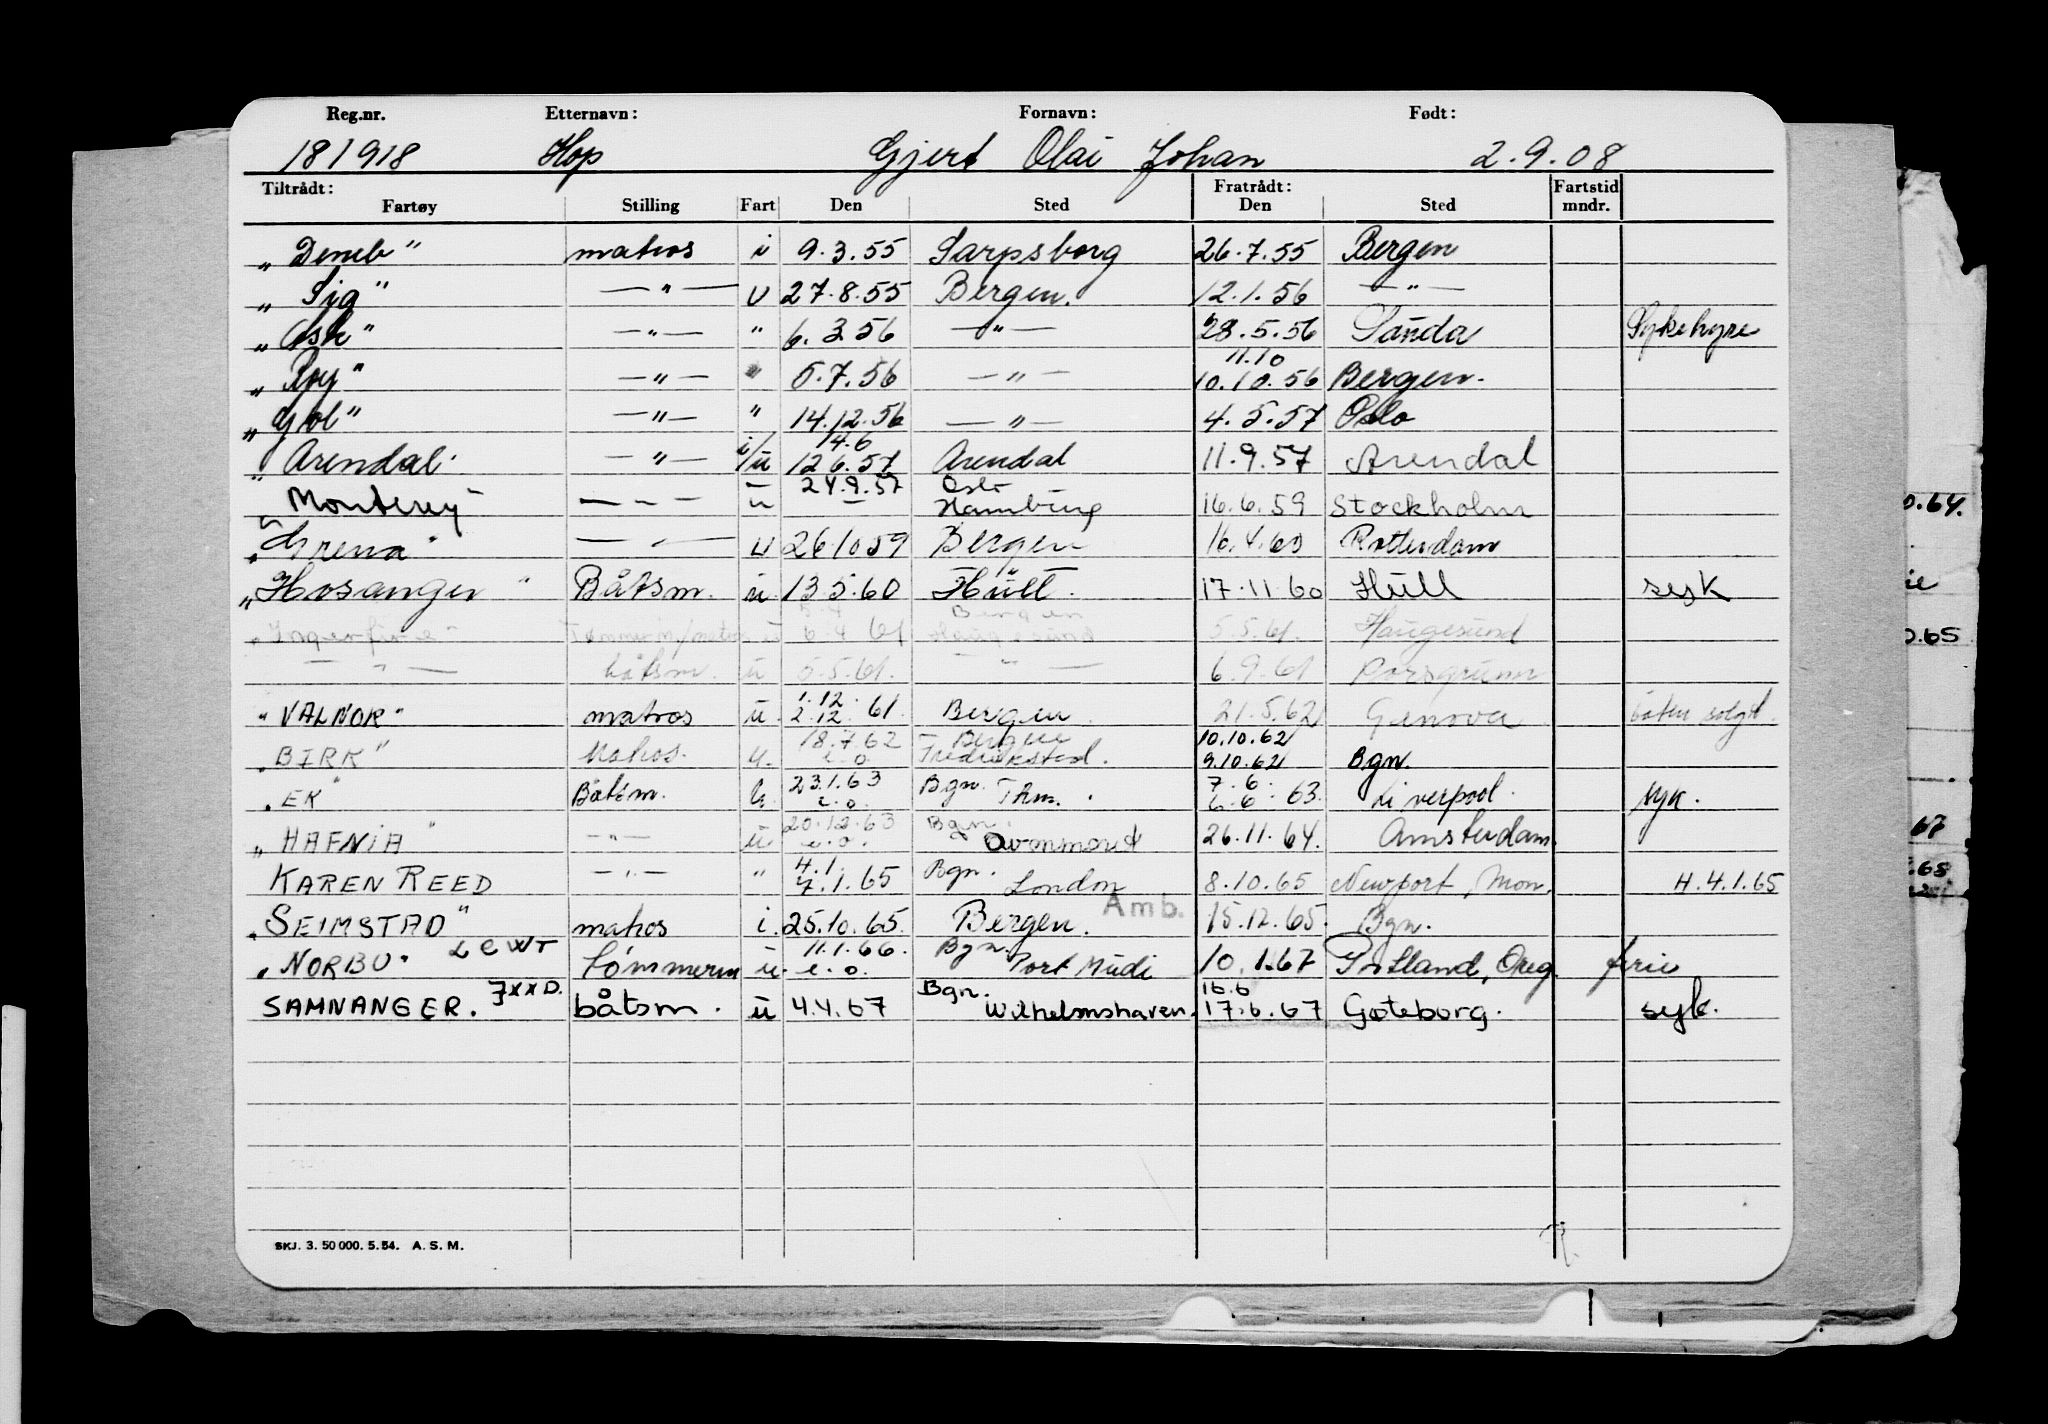 Reg.nr. Etternavn: Fornavn: Født:
181918 Hop Gjert Olai Johan 2.9.08
Tiltrådt: Fratrådt: Fartstid
Fartøy Stilling Fart Den Sted Den Sted mndr.
„Deneb" matros i 9.3.55 Sarpsborg 26.7.55 Bergen
„Sig" —"— U 27.8.55 Bergen. 12.1.56 —"—
„Ask" —"— " 6.3.56 —"— 28.5.56 Sauda Sykehyre
11.10
„Roy" —"— " 5.7.56 —"— 10.10.56 Bergen.
„Gol" —"— " 14.12.56 —"— 4.5.57 Oslo
14.6
„Arendal" —"— i/u 12.6.57 Arendal 11.9.57 Arendal
24.9.57 Oslo
„Monterey" — — — u — Hamburg 16.6.59 Stockholm
„Grena" —"— u 26.10.59 Bergen 16.4.60 Rotterdam
„Hosanger" Båtsm. u. 13.5.60 Hull. 17.11.60 Hull syk
5.4 Bergen
„Ingerfire" Tømmerm/matros u 6.4.61 Haugesund 5.5.61. Haugesund
—"— båtsm. u 5.5.61. —"— 6.9.61 Porsgrunn
1.12
"VALNOR" matros u. 2.12.61. Bergen 21.5.62 Genova båten solgt
18.7.62 Bergen 10.10.62
„BIRK" Matros. u. e.o. Fredrikstad. 9.10.62 Bgn.
23.1.63 Bgn. 7.6
„EK" Båtsm. u. e.o. Thm. 6.6.63. Liverpool. syk.
20.12.63 Bgn.
„HAFNIA" —"— u. e.o. Avonmouth 26.11.64. Amsterdam.
4.1. Bgn.
KAREN REED —"— " 7.1.65 London 8.10.65 Newport, Mon. H.4.1.65
Amb.
„SEIMSTAD" matros i. 25.10.65. Bergen. 15.12.65. Bgn.
LCWT 11.1.66. Bgn.
„NORBU" tømmerm u. e.o. Port Mudi 10.1.67 Portland, Oreg. ferie
JXXD. Bgn. 16.6
SAMNANGER. båtsm. u 4.4.67 Wilhelmshaven. 17.6.67 Gøteborg. syk.
SKJ. 3. 50 000. 5. 54. A. S. M.
0.64.
ie
0.65
67
.68